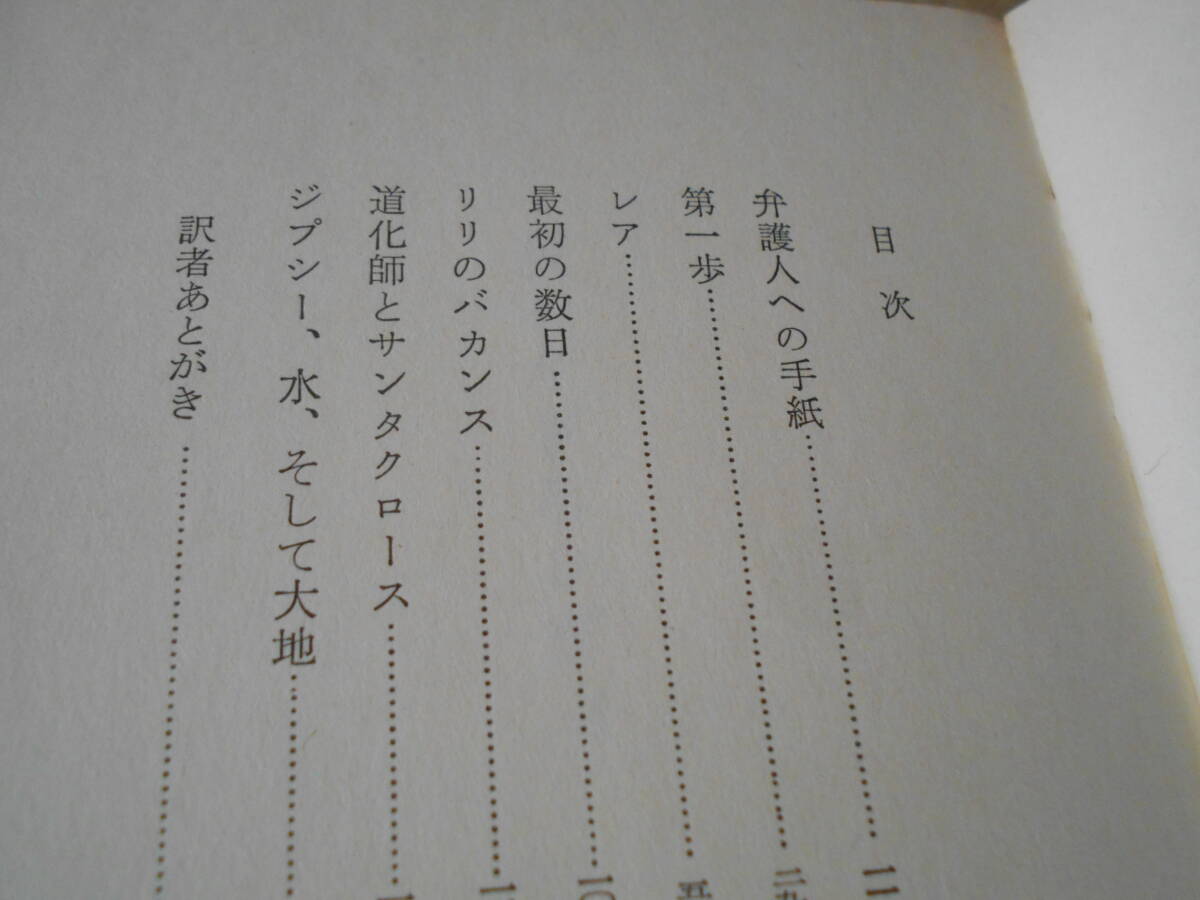 目次
弁護人への手紙…………………………11
第一歩…………………………二九
レア…………………………五
最初の数日…………………………10
リリのバカンス…………………………1
道化師とサンタクロース…………………………1
ジプシー、水、そして大地…………………………
訳者あとがき…………………………